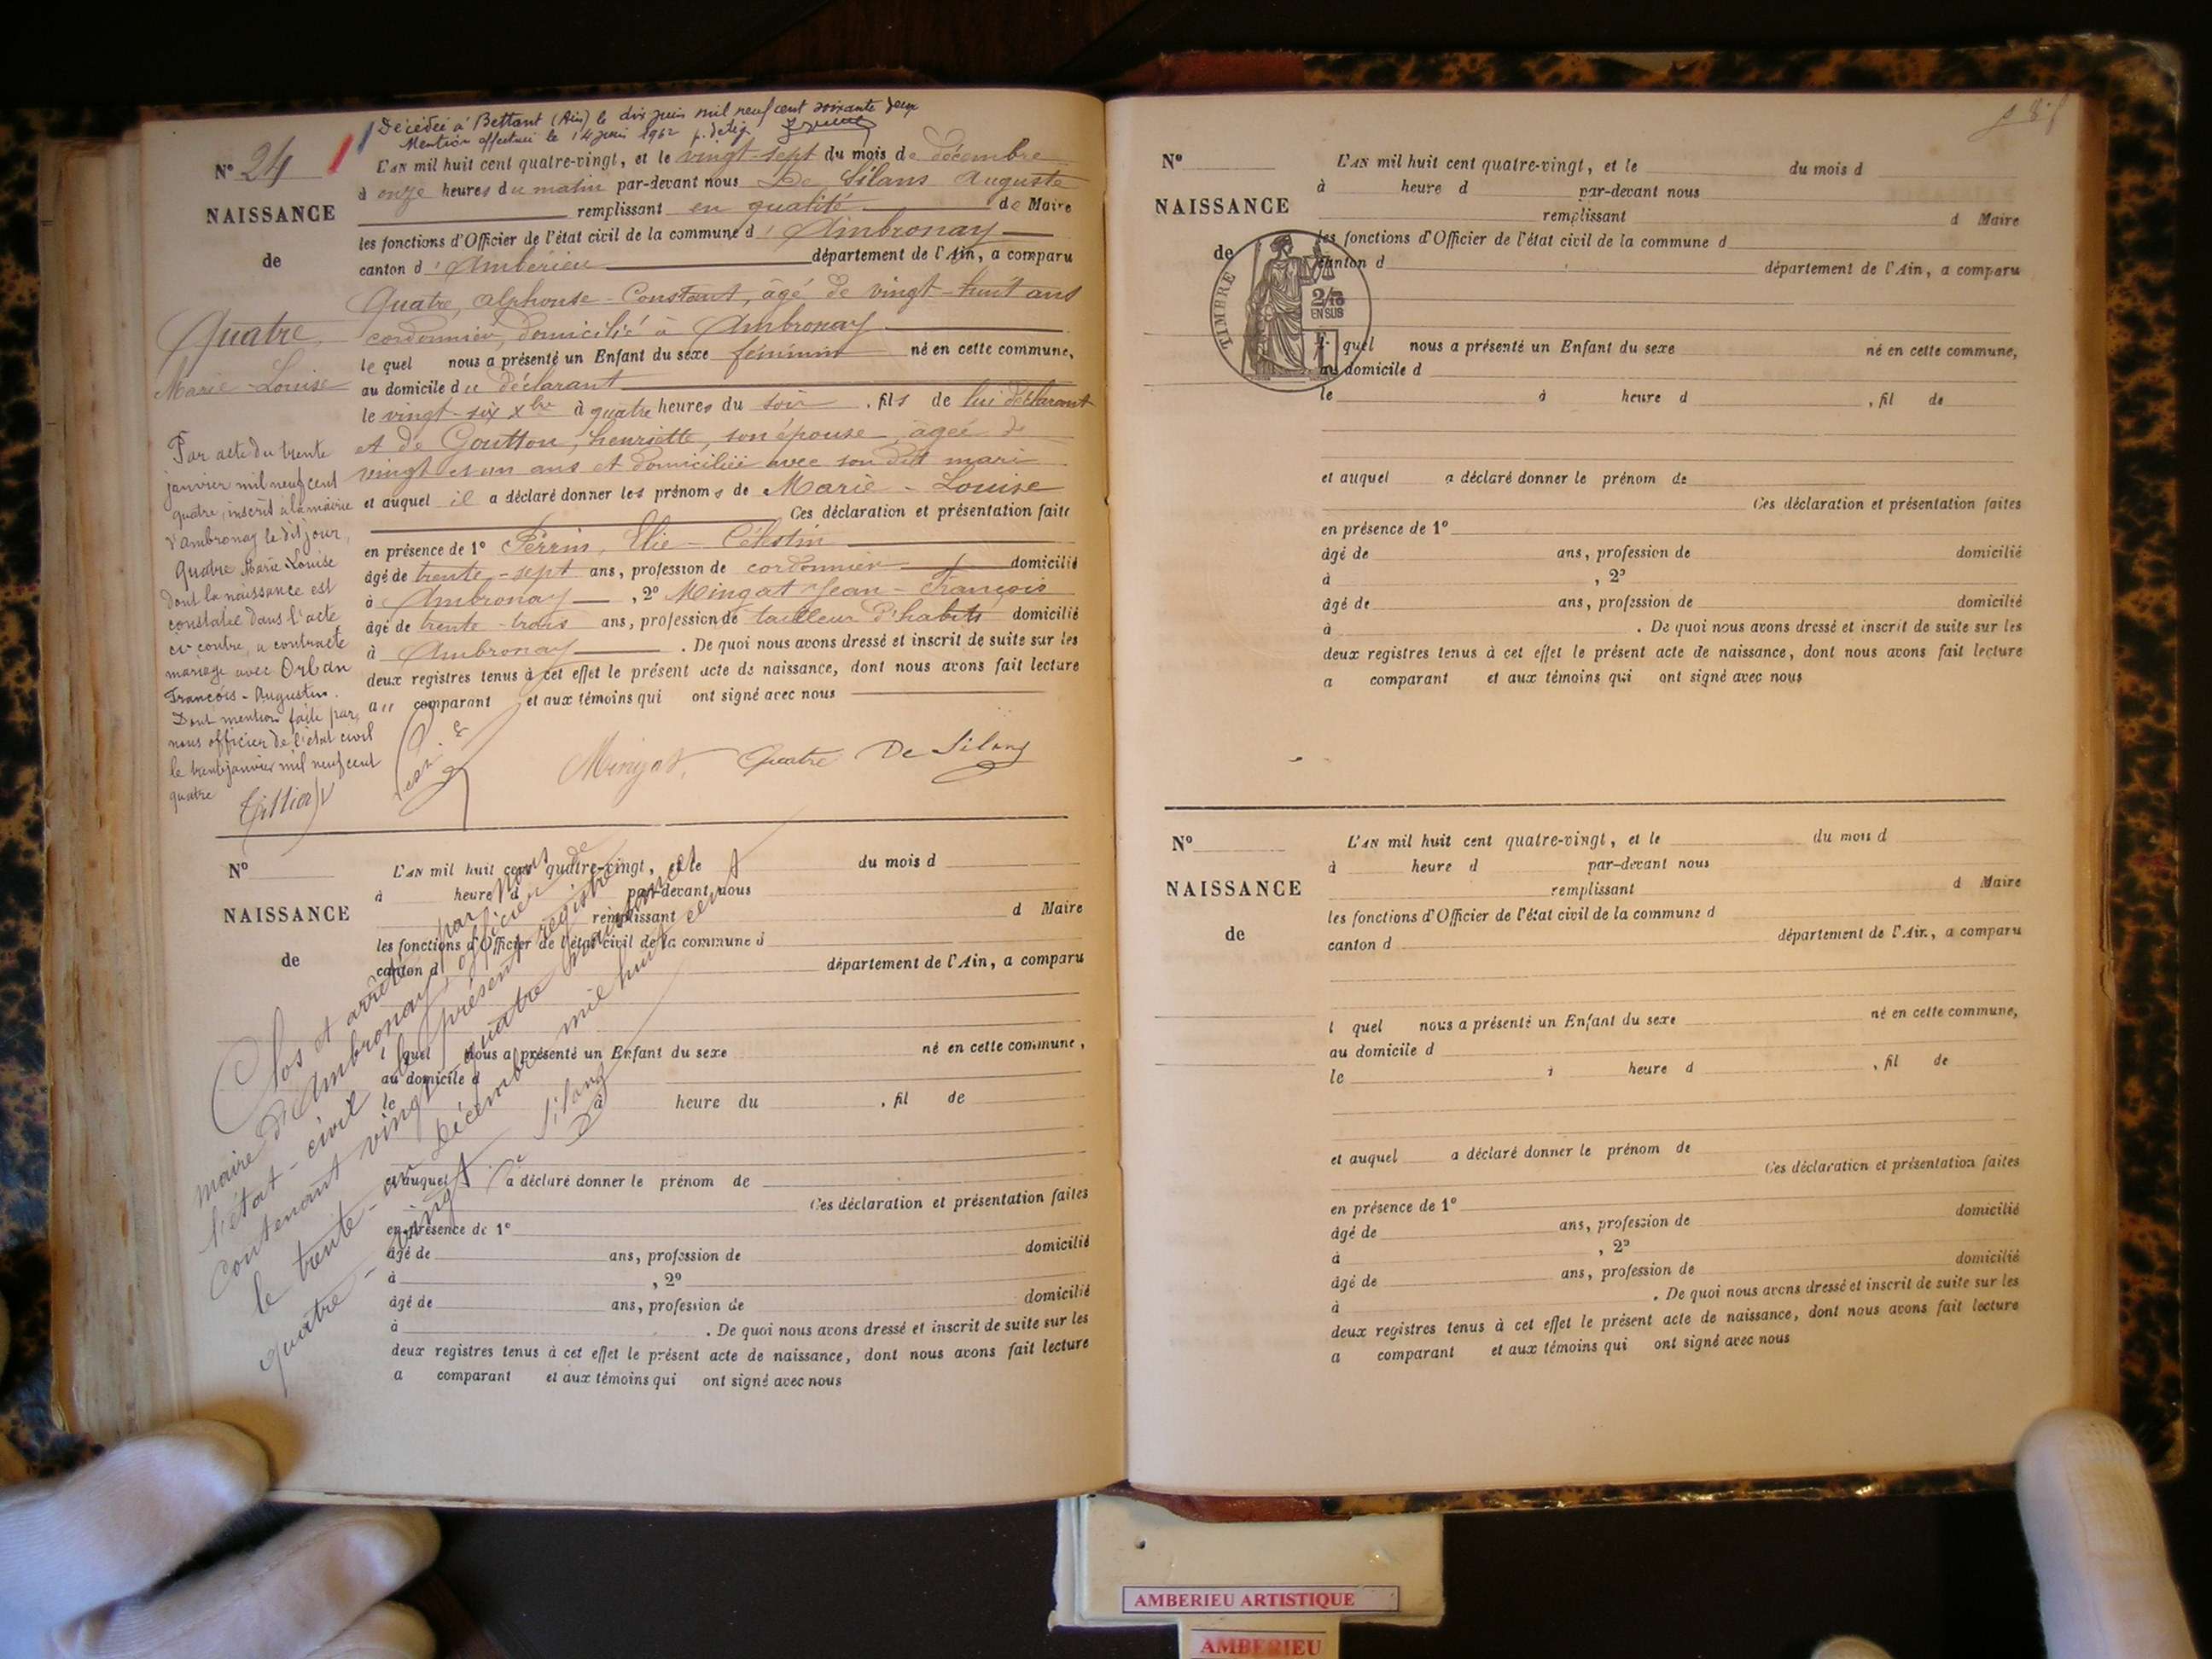 Décédée à Bettant (Ain) le dix juin mil neuf cent soixante deux
Mention effectuée le 14 juin 1962
N° 24
NAISSANCE
de
Quatre,
Marie-Louise
L'AN mil huit cent quatre-vingt, et le vingt-sept du mois de décembre
à onze heures du matin par-devant nous De Silans Auguste
remplissant en qualité de Maire
les fonctions d'Officier de l'état civil de la commune d'Ambronay
canton d'Ambérieu département de l'Ain, a comparu
Quatre, Alphonse-Constant, âgé de vingt-huit ans
cordonnier, domicilié à Ambronay
le quel nous a présenté un Enfant du sexe féminin né en cette commune,
au domicile du déclarant
le vingt-six xbre à quatre heures du soir, fils de lui déclarant
et de Goutton, henriette, son épouse, âgée de
vingt et un ans et domiciliée avec son dit mari
et auquel il a déclaré donner les prénoms de Marie-Louise
Ces déclaration et présentation faite
en présence de 1° Perrin, Elie-Célestin
âgé de trente-sept ans, profession de cordonnier domicilié
à Ambronay, 2° Mingat Jean-François
âgé de trente-trois ans, profession de tailleur d'habits domicilié
à Ambronay. De quoi nous avons dressé et inscrit de suite sur les
deux registres tenus à cet effet le présent acte de naissance, dont nous avons fait lecture
au comparant et aux témoins qui ont signé avec nous
Mingat, Quatre De Silans
Par acte du trente
janvier mil neuf cent
quatre, inscrit à la mairie
d'Ambronay le dit jour,
Quatre Marie Louise
dont la naissance est
constatée dans l'acte
ci-contre, a contracté
mariage avec Orban
François-Augustin.
Dont mention faite par
nous officier de l'état civil
le trente janvier mil neuf cent
quatre
N°
NAISSANCE
de
L'AN mil huit cent quatre-vingt, et le du mois d
à heure d par-devant nous
remplissant d Maire
les fonctions d'Officier de l'état civil de la commune d
canton d département de l'Ain, a comparu
l quel nous a présenté un Enfant du sexe né en cette commune,
au domicile d
le à heure du, fil de
et auquel a déclaré donner le prénom de
Ces déclaration et présentation faites
en présence de 1°
âgé de ans, profession de domicilié
à , 2°
âgé de ans, profession de domicilié
à . De quoi nous avons dressé et inscrit de suite sur les
deux registres tenus à cet effet le présent acte de naissance, dont nous avons fait lecture
a comparant et aux témoins qui ont signé avec nous
Clos et arrêté par nous
maire d'Ambronay, officier de
l'état-civil le présent registre
contenant vingt-quatre naissances
le trente-un Décembre mil huit cent
quatre-vingt
De Silans
N°
NAISSANCE
de
TIMBRE
2/10
EN SUS
L'AN mil huit cent quatre-vingt, et le du mois d
à heure d par-devant nous
remplissant d Maire
les fonctions d'Officier de l'état civil de la commune d
canton d département de l'Ain, a comparu
l quel nous a présenté un Enfant du sexe né en cette commune,
au domicile d
le à heure d , fil de
et auquel a déclaré donner le prénom de
Ces déclaration et présentation faites
en présence de 1°
âgé de ans, profession de domicilié
à , 2°
âgé de ans, profession de domicilié
à . De quoi nous avons dressé et inscrit de suite sur les
deux registres tenus à cet effet le présent acte de naissance, dont nous avons fait lecture
a comparant et aux témoins qui ont signé avec nous
N°
NAISSANCE
de
L'AN mil huit cent quatre-vingt, et le du mois d
à heure d par-devant nous
remplissant d Maire
les fonctions d'Officier de l'état civil de la commune d
canton d département de l'Ain, a comparu
l quel nous a présenté un Enfant du sexe né en cette commune,
au domicile d
le à heure d , fil de
et auquel a déclaré donner le prénom de
Ces déclaration et présentation faites
en présence de 1°
âgé de ans, profession de domicilié
à , 2°
âgé de ans, profession de domicilié
à . De quoi nous avons dressé et inscrit de suite sur les
deux registres tenus à cet effet le présent acte de naissance, dont nous avons fait lecture
a comparant et aux témoins qui ont signé avec nous
AMBERIEU ARTISTIQUE
AMBERIEU